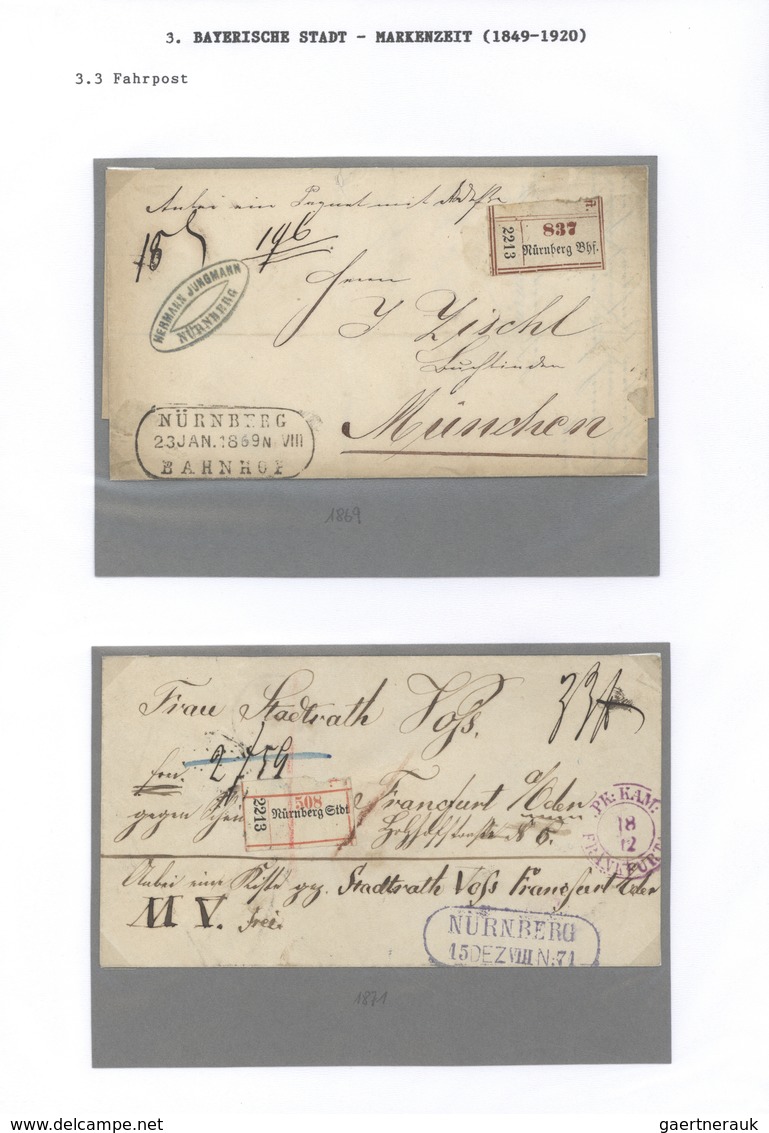 3. BAYERISCHE STADT - MARKENZEIT (1849-1920)
3.3 Fahrpost
Anbei ein Paquet mit
18
196
837
2213
Nürnberg Bhf.
HERMANN JUNGMANN
NÜRNBERG
Herrn
J Zischl
Buchbinder
München
NÜRNBERG
23 JAN. 1869 N VIII
BAHNHOF
1869
Frau Stadtrath Voss.
frco.
2/759
gegen Schein
508
2213
Nürnberg Stdt
Francfurt a/Oder
No 6.
PK: KAM:
18
12
FRANKFURT
Anbei eine Kiste gez. Stadtrath Voss Francfurt Oder
M V. frei.
NÜRNBERG
15 DEZ VIII N: 71
1871
www.delcampe.net
gaertnerauk